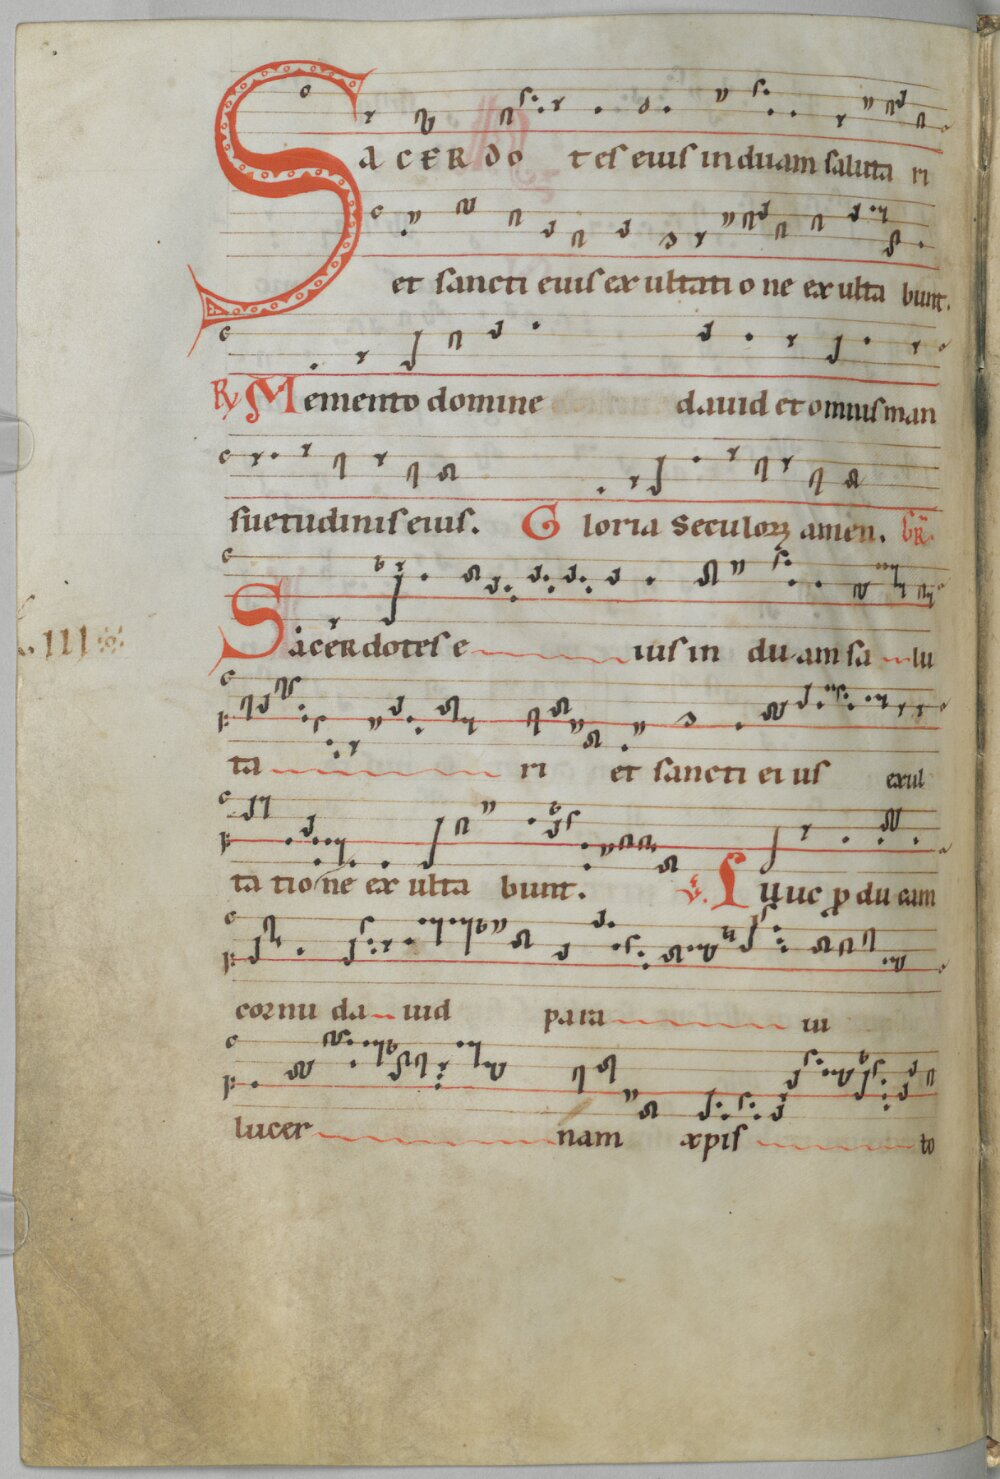 SACERDOtes eius induam saluta ri
et sancti eius exultatione exulta bunt.
℟ Memento domine dauid et omnis man
suetudinis eius. Gloria Seculorꝝ amen.
Sacerdotes e ius in duam sa lu
III
ta ri et sancti eius exul
tatione exulta bunt. ℣. Illuc ꝓducam
cornu da uid para ui
lucer nam xpis to